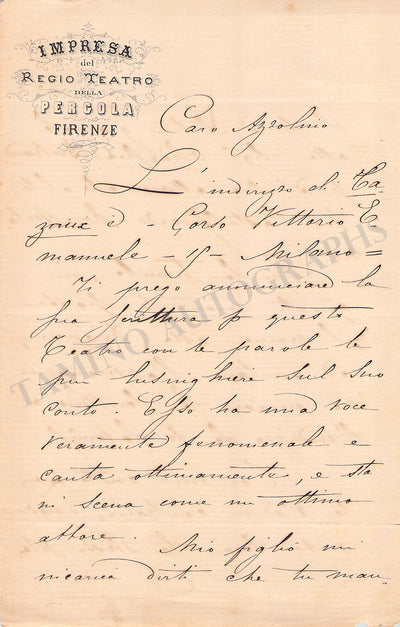 IMPRESA
del
REGIO TEATRO
DELLA
PERGOLA
FIRENZE
Caro Azzolino
L'indirizzo di
è - Corso Vittorio E
manuele - 15 - Milano =
Ti prego annunciare la
sua scrittura p questo
Teatro con le parole le
più lusinghiere sul suo
conto. Esso ha una voce
veramente fenomenale e
canta ottimamente, e sta
in scena come un ottimo
attore. Mio figlio mi
incarica dirti che tu man-
TAMINO AUTOGRAPHS